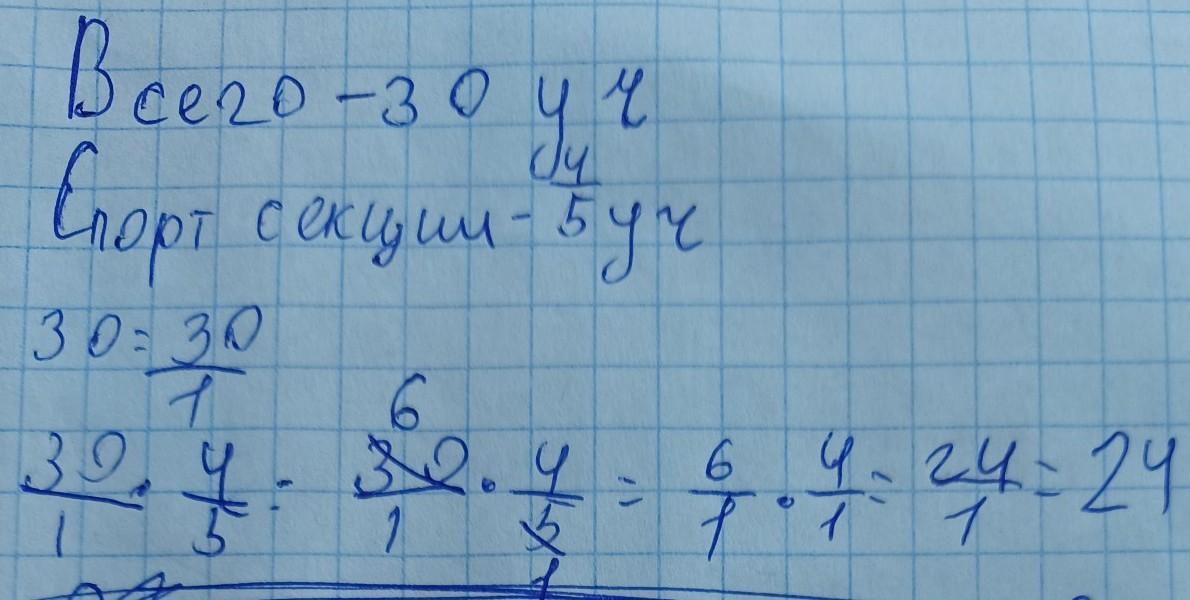 Всего - 30 уч
Спорт секции - 4/5 уч
30 = 30/1
30/1 · 4/5 = 30/1 · 4/5 = 6/1 · 4/1 = 24/1 = 24